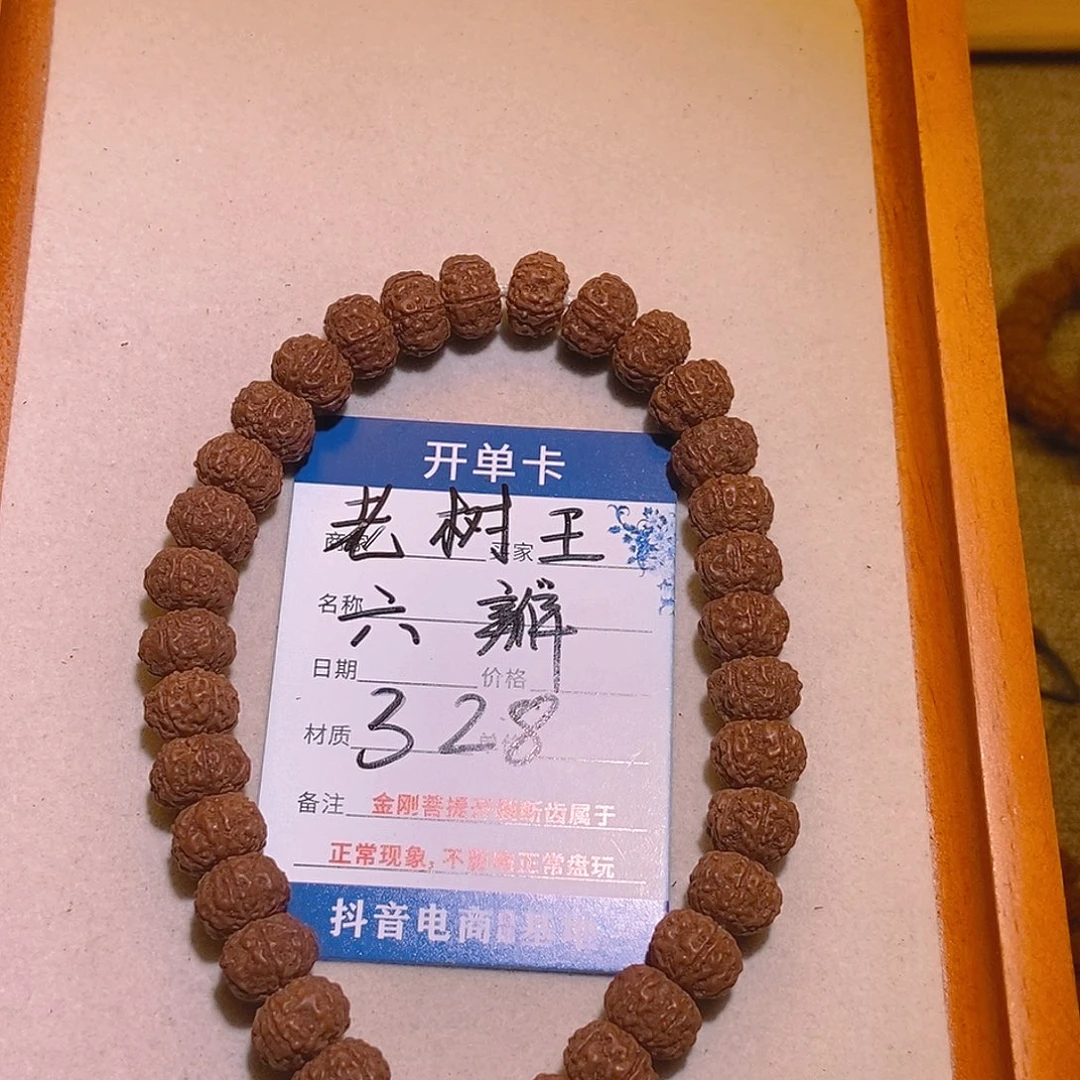 开单卡
老树王
家
名称 六辦
日期 价格
材质 328
备注 金刚菩提 断齿属于
正常现象,不 正常盘玩
抖音电商 基地